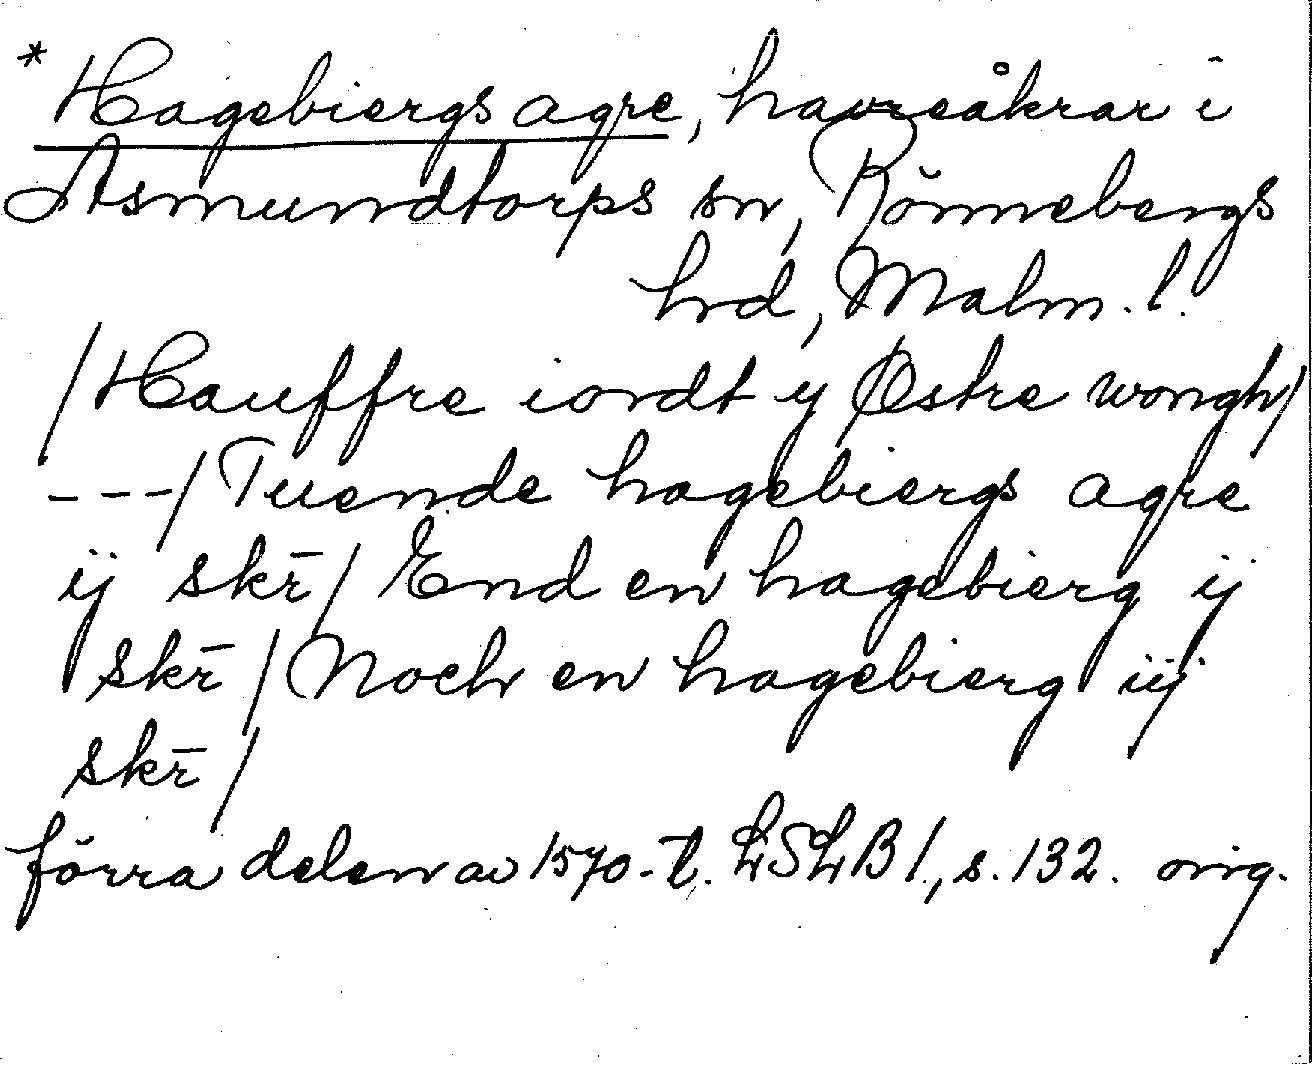 * Hagebiergs agre, havreåkrar i
Asmundtorps sn, Rönnebergs
hrd, Malm. l.
/Hauffre iordt ÿ Østre wongh/
---/Tuende hagebiergs agre
ij skr̄/ End en hagebierg ij
skr̄/ Noch en hagebierg iij
skr̄/
förra delen av 1570-t. LSLB 1, s. 132. orig.